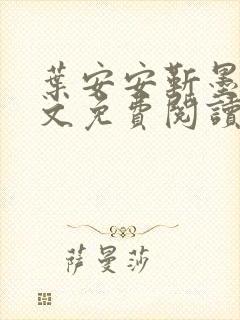 葉安安靳墨
文免費閱讀
萨曼莎